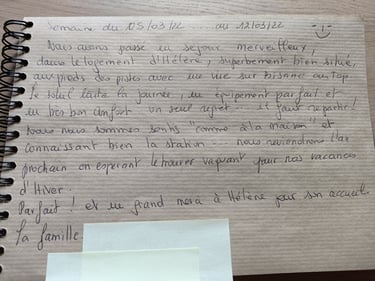 Semaine du 05/03/22 ... au 12/03/22
Nous avons passé un séjour merveilleux,
dans le logement d'Hélène, superbement bien situé,
aux pieds des pistes avec une vue sur Bisanne au top
Le soleil toute la journée, un équipement parfait et
un très bon confort un seul regret ... il faut repartir !
Nous nous sommes sentis "comme à la maison" et
connaissant bien la station ... nous reviendrons l'an
prochain en espérant le trouver vaquant pour nos vacances
d'Hiver.
Parfait ! et un grand merci à Hélène pour son accueil.
La famille